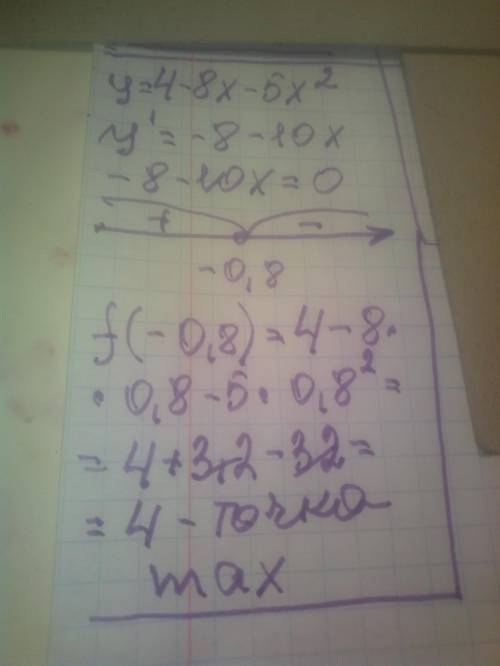 y=4-8x-5x²
y'=-8-10x
-8-10x=0
+ -
-0,8
f(-0,8)=4-8·
·0,8-5·0,8²=
=4+3,2-3,2=
=4-точка
max